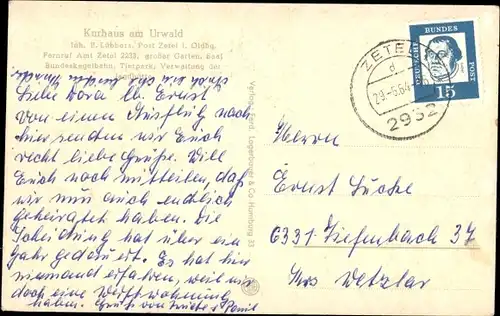 Kurhaus am Urwald
Inh. R. Lübbers, Post Zetel i. Oldbg.
Fernruf Amt Zetel 2213, großer Garten, Saal
Bundeskegelbahn, Tierpark, Verwaltung der
Liebe Dora lb. Ernst
von einem Ausflug nach
hier senden wir Euch
recht liebe Grüße. Will
Euch noch mitteilen, daß
wir nun auch endlich
geheiratet haben. Die
Scheidung hat über ein
Jahr gedauert. Es hat hier
niemand erfahren, weil wir
doch eine Werftwohnung
haben. Gruß von
Ferd. Lagerbauer & Co Hamburg 33
DEUTSCHE BUNDES POST
15
ZETEL
d
29.-5.64
2932
Herrn
Ernst
6331 Tiefenbach 34
Krs Wetzlar